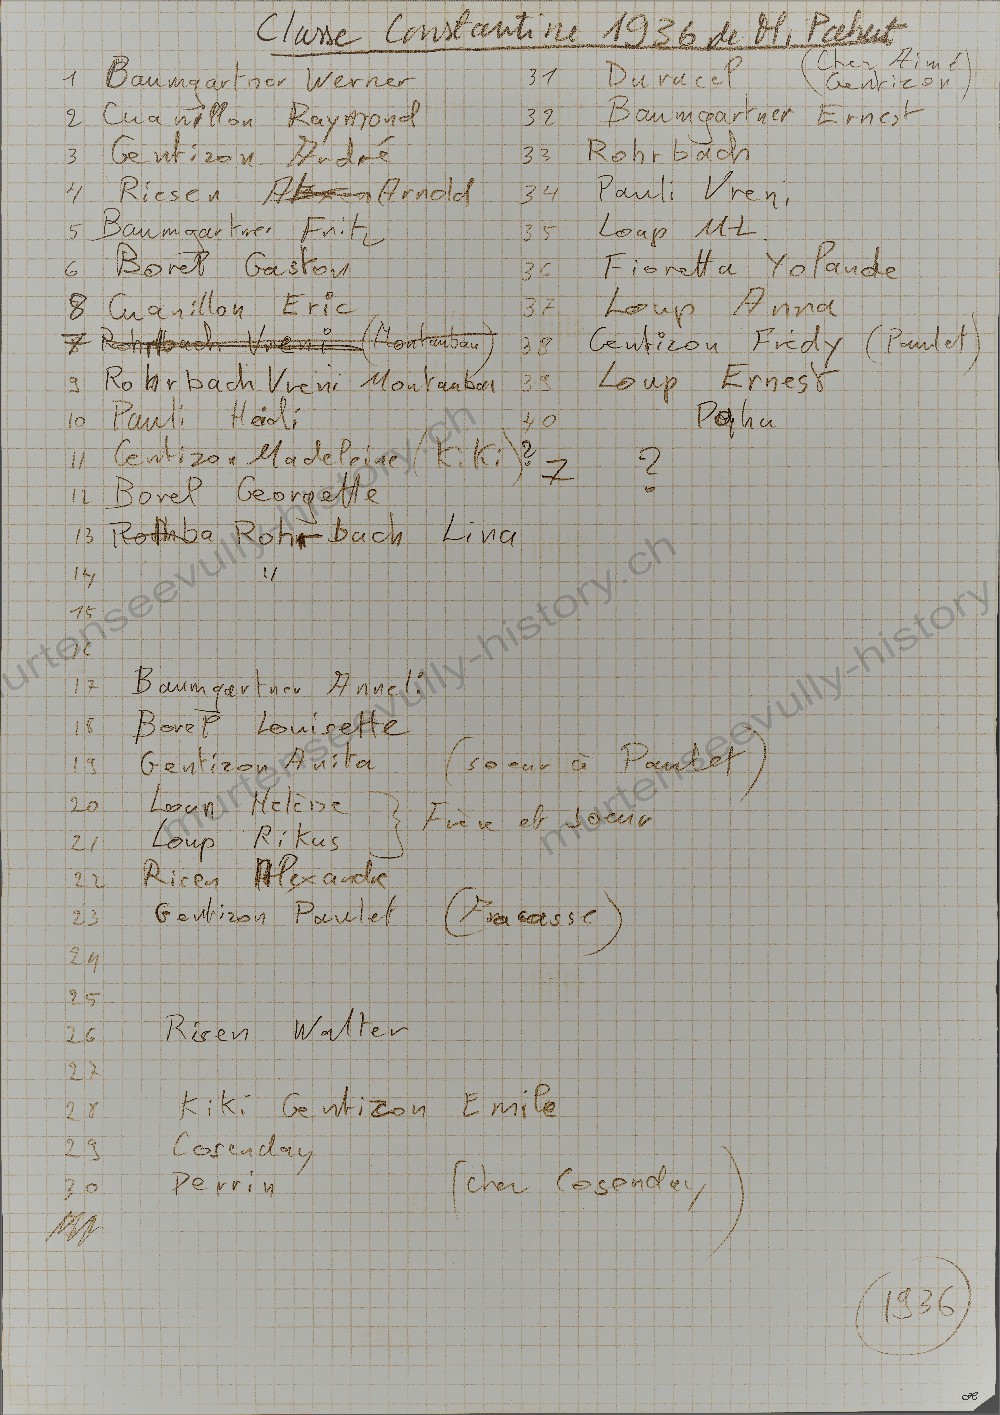 Classe Constantine 1936 de M. Pahut
1 Baumgartner Werner
2 Cuanillon Raymond
3 Gentizon André
4 Riesen Arnold
5 Baumgartner Fritz
6 Borel Gaston
8 Cuanillon Eric
7 Rohrbach Vreni (Montauban)
9 Rohrbach Vreni Montauban
10 Pauli Hedi
11 Gentizon Madeleine (Kiki)?
12 Borel Georgette
13 Rothba Rohrbach Lina
14 "
15
16
17 Baumgartner Anneli
18 Borel Louisette
19 Gentizon Anita (soeur à Paulet)
20 Loup Heleise
21 Loup Rikus } Frère et soeur
22 Risen Alexandre
23 Gentizon Paulet (Fracasse)
24
25
26 Risen Walter
27
28 Kiki Gentizon Emile
29 Cosenday
30 Perrin (chez Cosenday)
31 Duracel (Chez Aimé Gentizon)
32 Baumgartner Ernest
33 Rohrbach
34 Pauli Vreni
35 Loup ML
36 Fioretta Yolande
37 Loup Anna
38 Gentizon Frédy (Paulet)
39 Loup Ernest
40 Pahu
7 ?
1936
murtenseevully-history.ch
murtenseevully-history.ch
murtenseevully-history